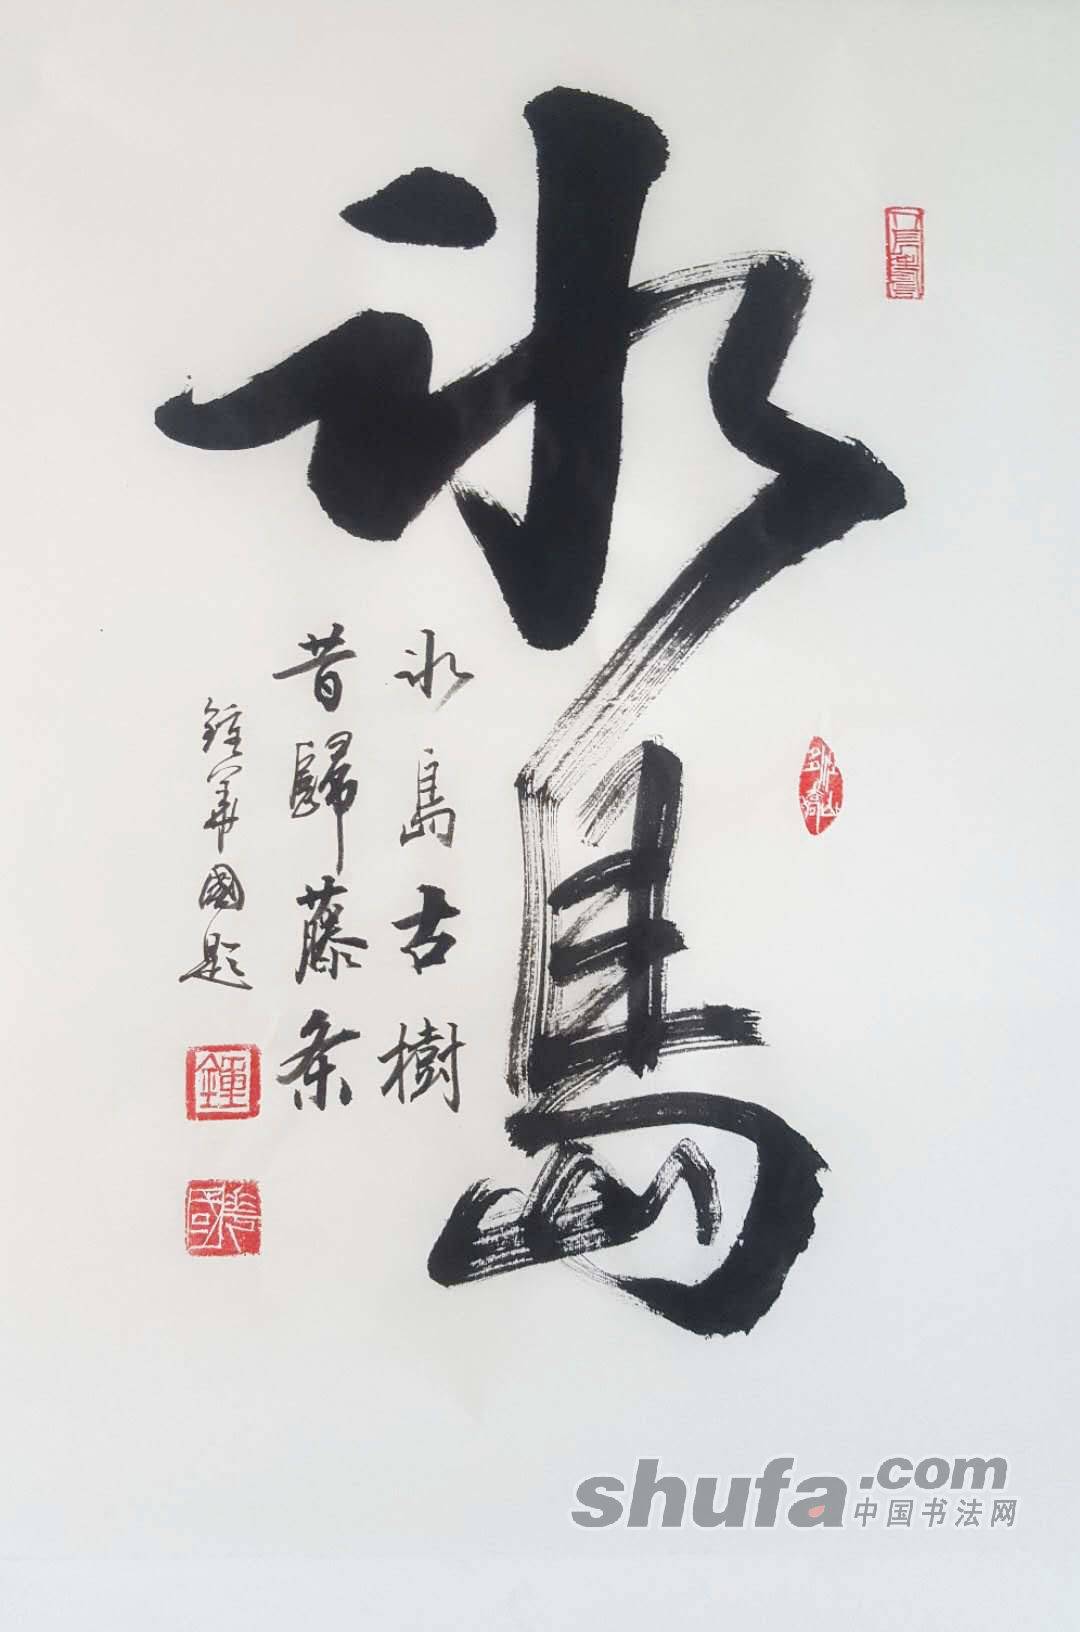 冰島
冰島古樹
昔歸藤条
鍾華國題
鍾
shufa.com
中国书法网